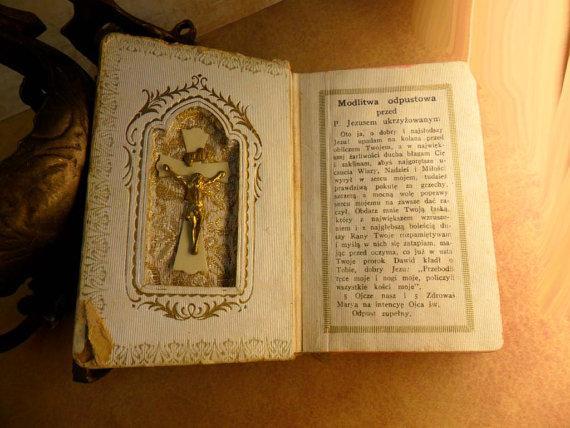 Modlitwa odpustowa
przed
P. Jezusem ukrzyżowanym:
Oto ja, o dobry i najsłodszy
Jezu! upadam na kolana przed
obliczem Twojem, a w najwięk-
szej żarliwości ducha błagam Cię
i zaklinam, abyś najgorętsze u-
czucia Wiary, Nadziei i Miłości
wyrył w sercu mojem, tudzież
prawdziwą pokutę za grzechy,
szczerą, a mocną wolę poprawy
sercu mojemu na zawsze dać ra-
czył. Obdarz mnie Twoją łaską,
który z największem wzrusze-
niem i z najgłębszą boleścią du-
szy Rany Twoje rozpamiętywam
i myślą w nich się zatapiam, ma-
jąc przed oczyma, co już w usta
Twoje prorok Dawid kładł o
Tobie, dobry Jezu: „Przebodli
ręce moje i nogi moje, policzyli
wszystkie kości moje".
5 Ojcze nasz i 5 Zdrowaś
Marya na intencyę Ojca św.
Odpust zupełny.